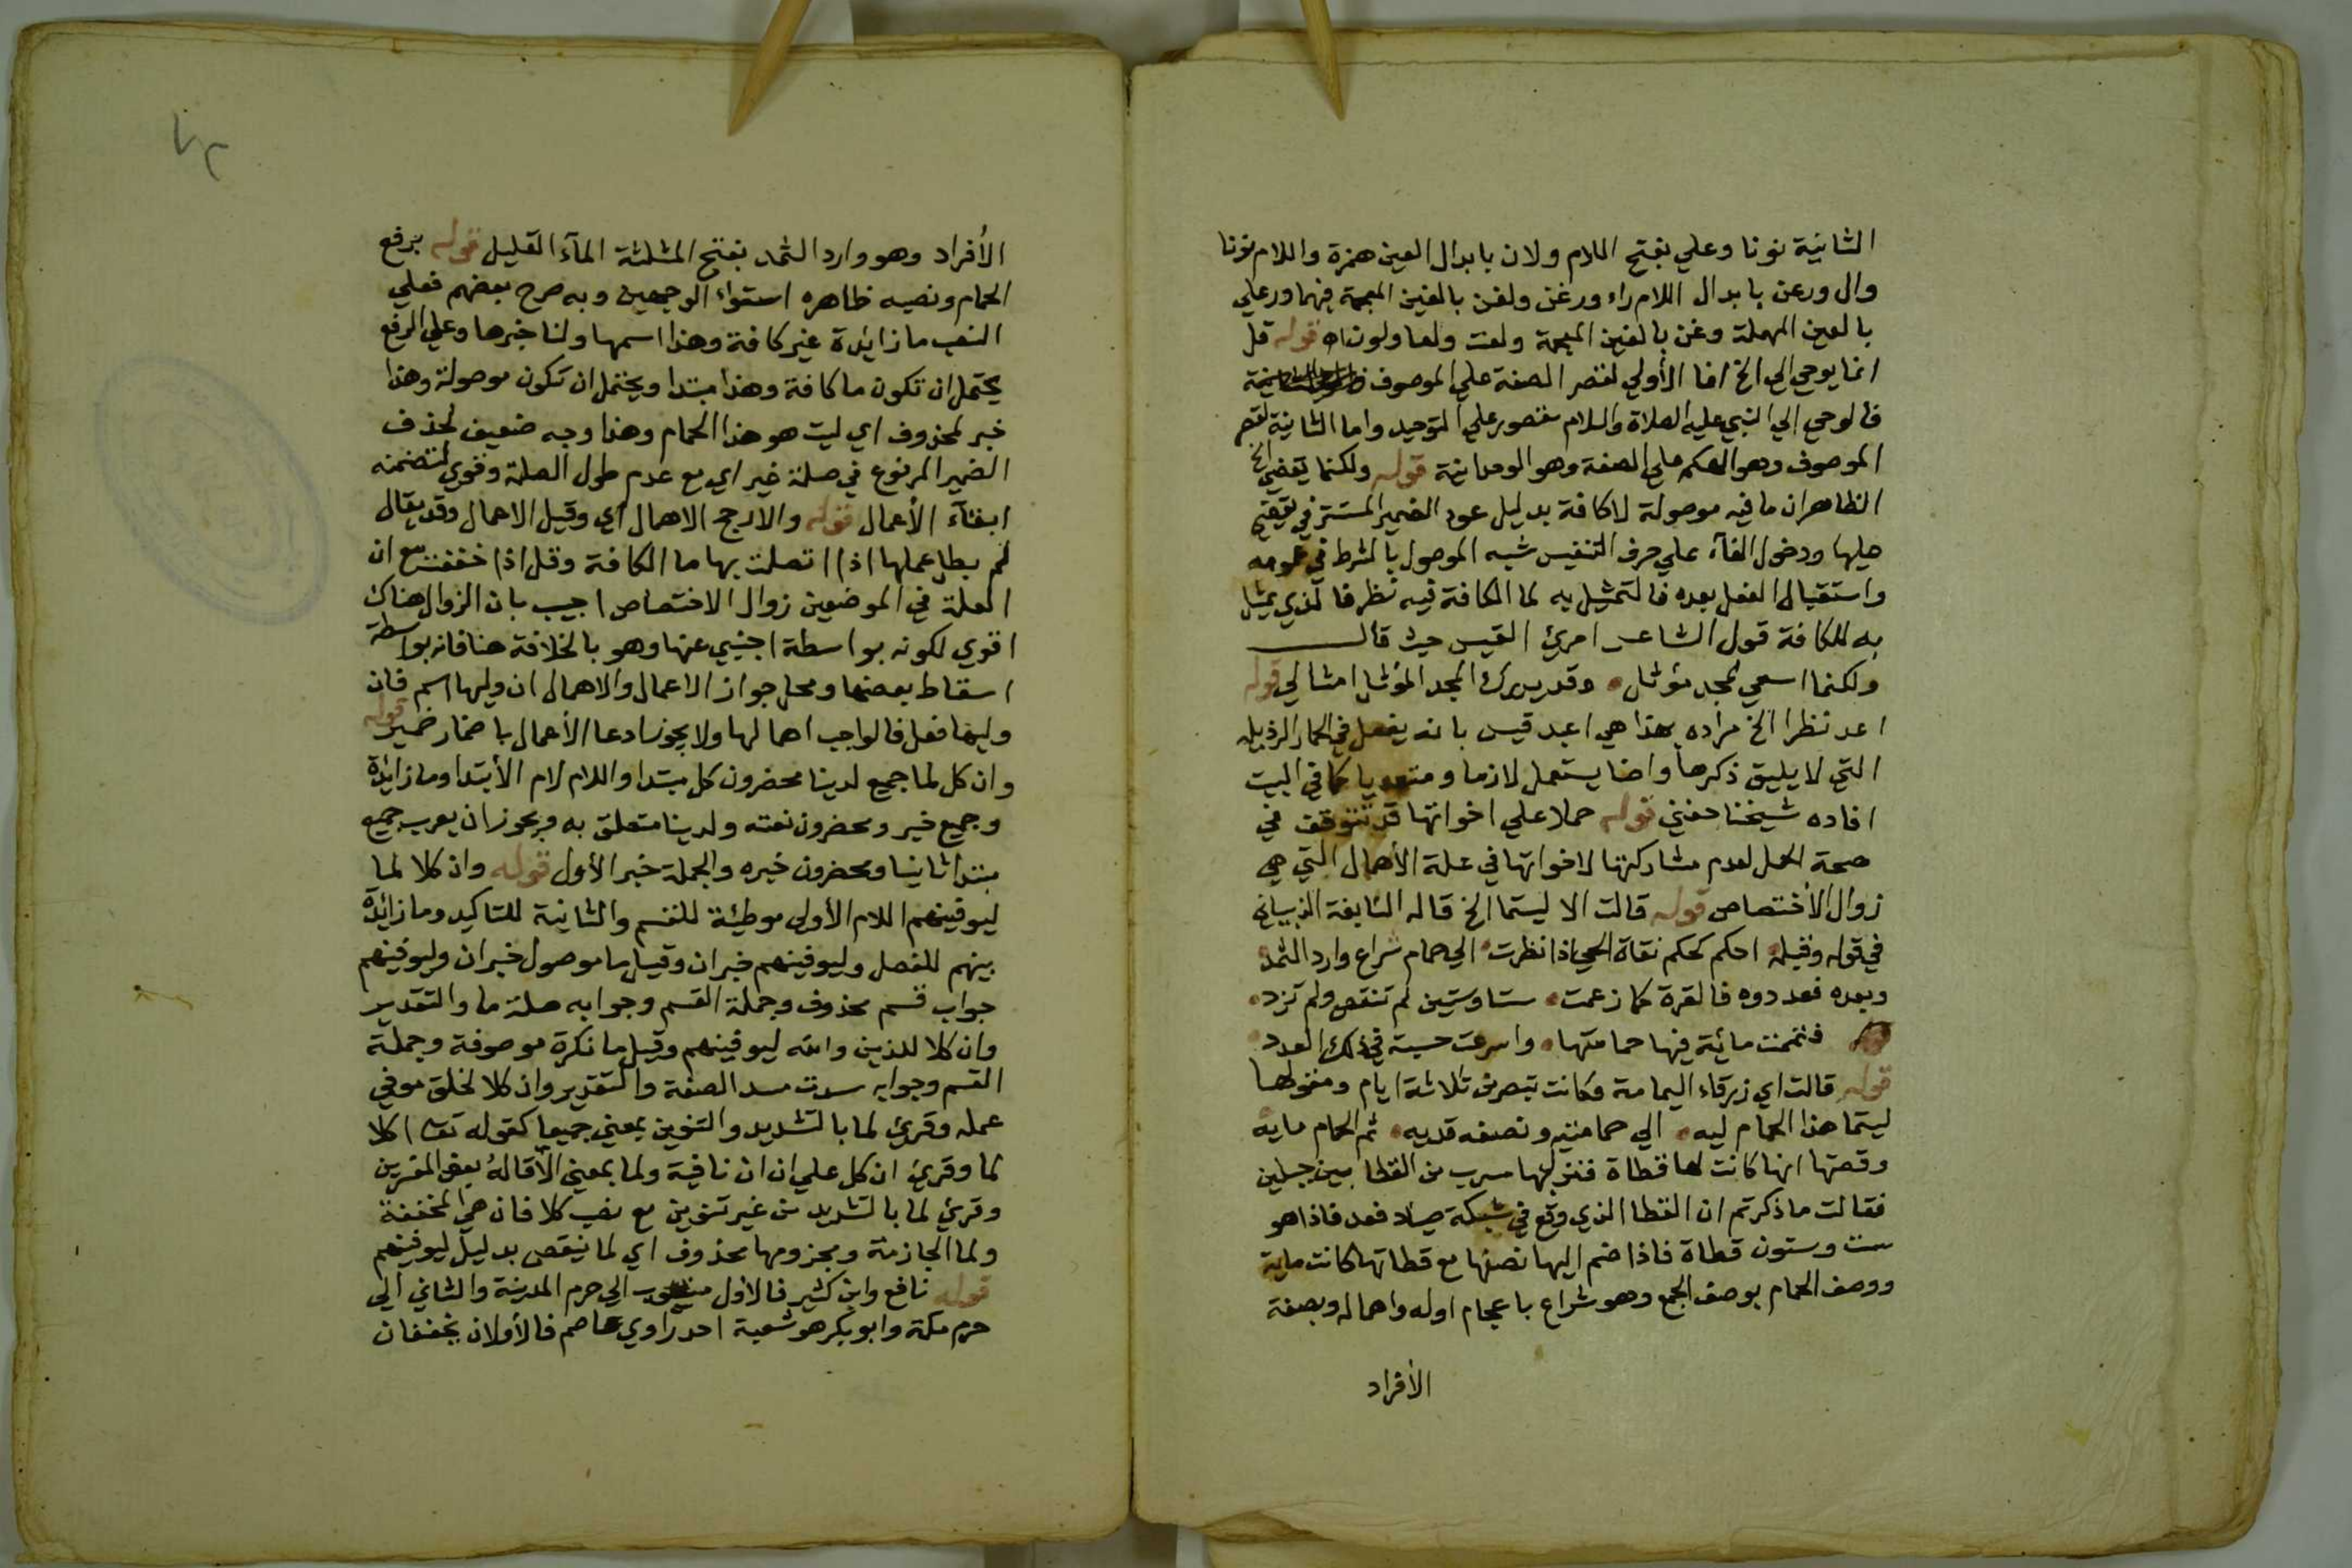 الثانية نونا وعلي بفتح اللام ولان بابدال العين همزة واللام نونا
وال ورعن بابدال اللام راء ورغن ولغن بالغين المعجمة فيهما ورعلي
بالعين المهملة وغن بالغين المعجمة ولعا ولونات قوله قل
انما يوحي الي الخ انما الأولي لقصر الصفة علي الموصوف
فالوحي الي النبي عليه الصلاة والسلام مقصور علي التوحيد واما الثانية لقصر
الموصوف وهو الهكم علي الصفة وهو الوحدانية قوله ولكنما يقضي الخ
الظاهر ان ما فيه موصولة لا كافة بدليل عود الضمير المستتر في يقضي
عليها ودخول الفآء علي حرف التنفيس شبه الموصول بالشرط في عمومه
واستقبال الفعل بعده فالتمثيل به لما الكافة فيه نظر فالذي يمثل
به للكافة قول الشاعر امرئ القيس حيث قال
ولكنما اسعي لمجد مؤثل وقد يدرك المجد المؤثل امثالي قوله
اعد نظرا الخ مراده بهذا هي اعبد قيس بانه يفعل في الحمار الرذيله
التي لا يليق ذكرها واضا يستعمل لازما ومتعديا كما في البيت
افاده شيخنا حفني قوله حملا علي اخواتها قد تتوقف في
صحة الحمل لعدم مشاركتها لاخواتها في علة الأهمال التي هي
زوال الأختصاص قوله قالت الا ليتما الخ قاله النابغة الذبياني
في قوله وقبله احكم كحكم فتاة الحي اذا نظرت الي حمام شراع وارد الثمد
وبعده فعددوه فالقوة كما زعمت ستا وستين لم تنقص ولم تزد
فتممت مائية فيها حمامتها واسرعت حسبة في ذلك العدد
قوله قالت اي زرقاء اليمامة وكانت تبصر من ثلاثة ايام ومقولها
ليتما هذا الحمام ليه الي حمامتيه ونصفه قديه ثم الحمام مايه
وقصتها انها كانت لها قطاة فنزل بها سرب من القطا بين جبلين
فقالت ما ذكرتم ان القطا الذي وقع في شبكة صياد فعد فاذا هو
ست وستون قطاة فاذا ضم اليها نصفها مع قطاتها كانت ماية
ووصف الحمام بوصف الجمع وهو شراع باعجام اوله واهماله وبصفة
الأفراد
الأفراد وهو وارد الثمد بفتح المثلثة المآء القليل قوله برفع
الحمام ونصبه ظاهره استواء الوجهين وبه صرح بعضهم فعلي
النصب ما زايدة غير كافة وهذا اسمها ولنا خبرها وعلي الرفع
يحتمل ان تكون ما كافة وهذا مبتدا ويحتمل ان تكون موصولة وهذا
خبر لمحذوف اي ليت هو هذا الحمام وهذا وجه ضعيف لحذف
الضمير المرفوع في صلة غير اي مع عدم طول الصلة وقوي لتضمنه
ابقآء الأعمال قوله والارجح الاهمال اي وقيل الاعمال وقد يقال
لم بطل عملها اذا اتصلت بها ما الكافة وقل اذا خففت مع ان
العلة في الموضعين زوال الاختصاص اجيب بان الزوال هناك
اقوي لكونه بواسطة اجنبي عنها وهو بالخلافة هنا فانه بواسطة
اسقاط بعضها ومحل جواز الاعمال والاهمال ان وليها اسم فان
وليها فعل فالواجب اهمالها ولا يجوز ادعا الأعمال باضمار ضمير قوله
وان كل لما جميع لدينا محضرون كل مبتدا واللام لام الأبتدا وما زائدة
وجميع خبر ومحضرون نعته ولدينا متعلق به ويجوز ان يعرب جميع
مبتدا ثانيا ومحضرون خبره والجملة خبر الأول قوله وان كلا لما
ليوفينهم اللام الأولي موطئة للقسم والثانية للتاكيد وما زائدة
بينهم للفصل وليوفينهم خبر ان وقيل ما موصول خبر ان وليوفينهم
جواب قسم محذوف وجملة القسم وجوابه صلة ما والتقدير
وان كلا للذين والله ليوفينهم وقيل ما نكرة موصوفة وجملة
القسم وجوابه سدت مسد الصفة والتقدير وان كلا لخلق موفي
عمله وقرئ لما بالتشديد والتنوين بمعني جميعا كقوله تعا اكلا
لما وقرئ ان كل علي ان ان نافية ولما بمعني الا قاله بعض المفسرين
وقرئ لما بالتشديد من غير تنوين مع نصب كلا فان هي المخففة
ولما الجازمة ومجزومها محذوف اي لما ينقص بدليل ليوفينهم
قوله نافع وابن كثير فالاول منسوب الي حرم المدينة والثاني الي
حرم مكة وابو بكر هو شعبة احد راوي عاصم فالأولان يخففان